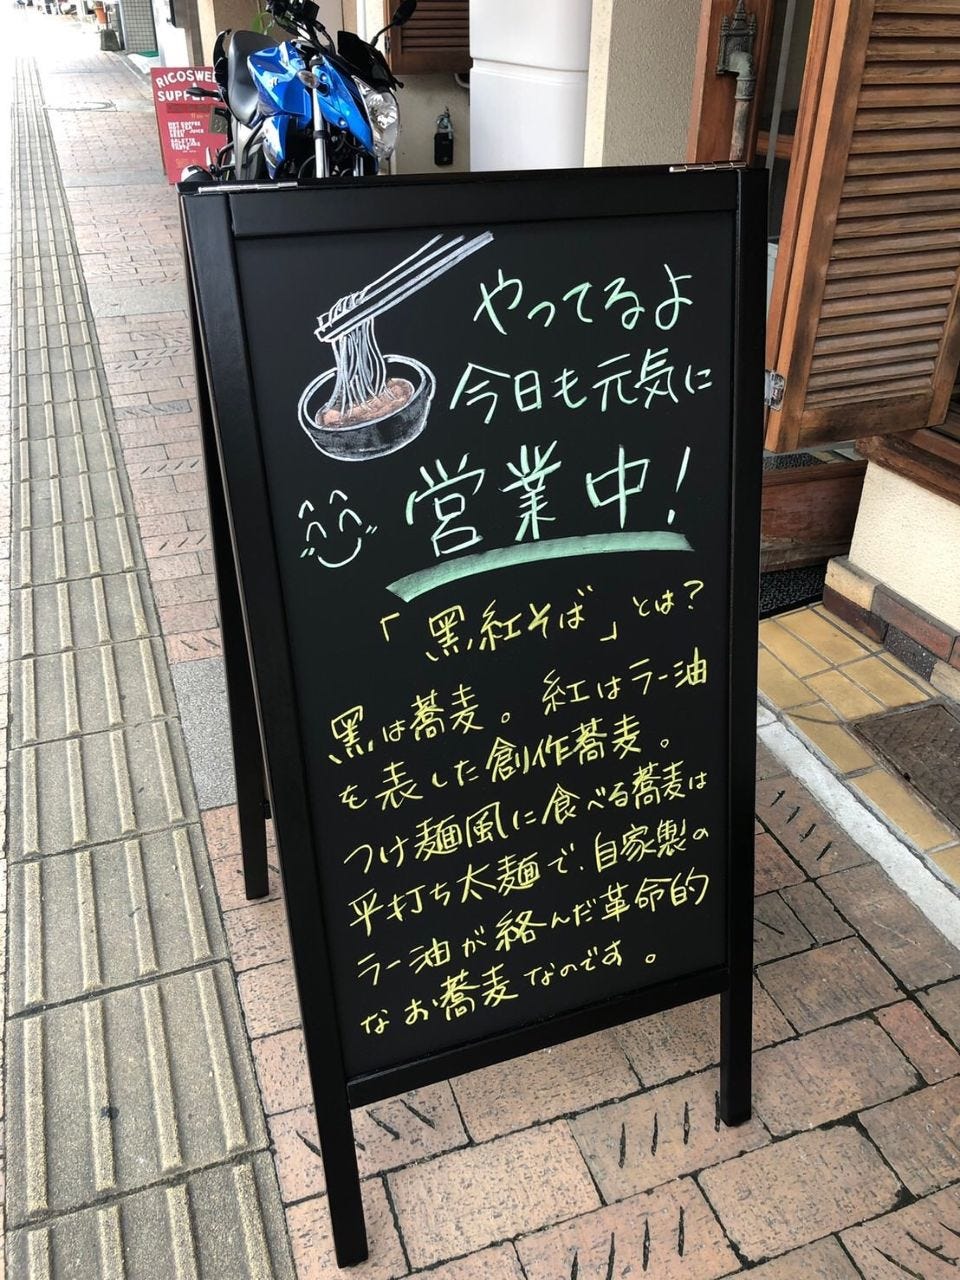 RICOSWEE
SUPPE
HOT COFFEE
やってるよ
今日も元気に
営業中!
「黒紅そば」とは?
黒は蕎麦。紅はラー油
を表した創作蕎麦。
つけ麺風に食べる蕎麦は
平打ち太麺で、自家製の
ラー油が絡んだ革命的
なお蕎麦なのです。